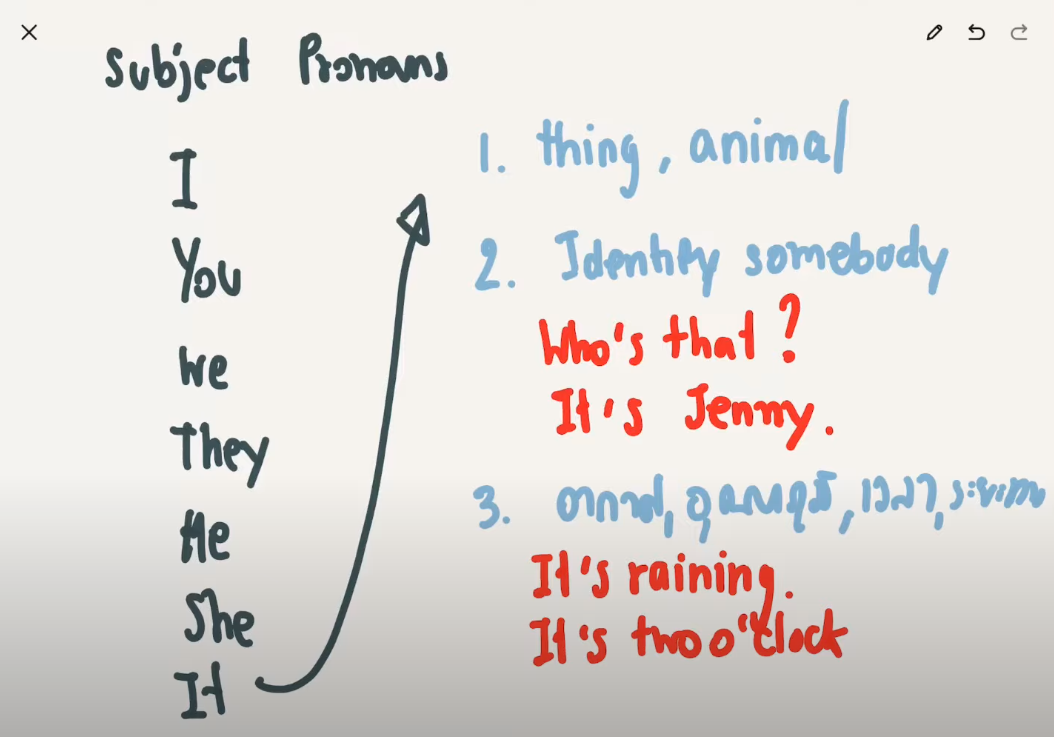 Subject Pronouns
I
You
We
They
He
She
It
1. thing, animal
2. Identify somebody
Who's that?
It's Jenny.
3. อากาศ, อุณหภูมิ, เวลา, ระยะทาง
It's raining.
It's two o'clock